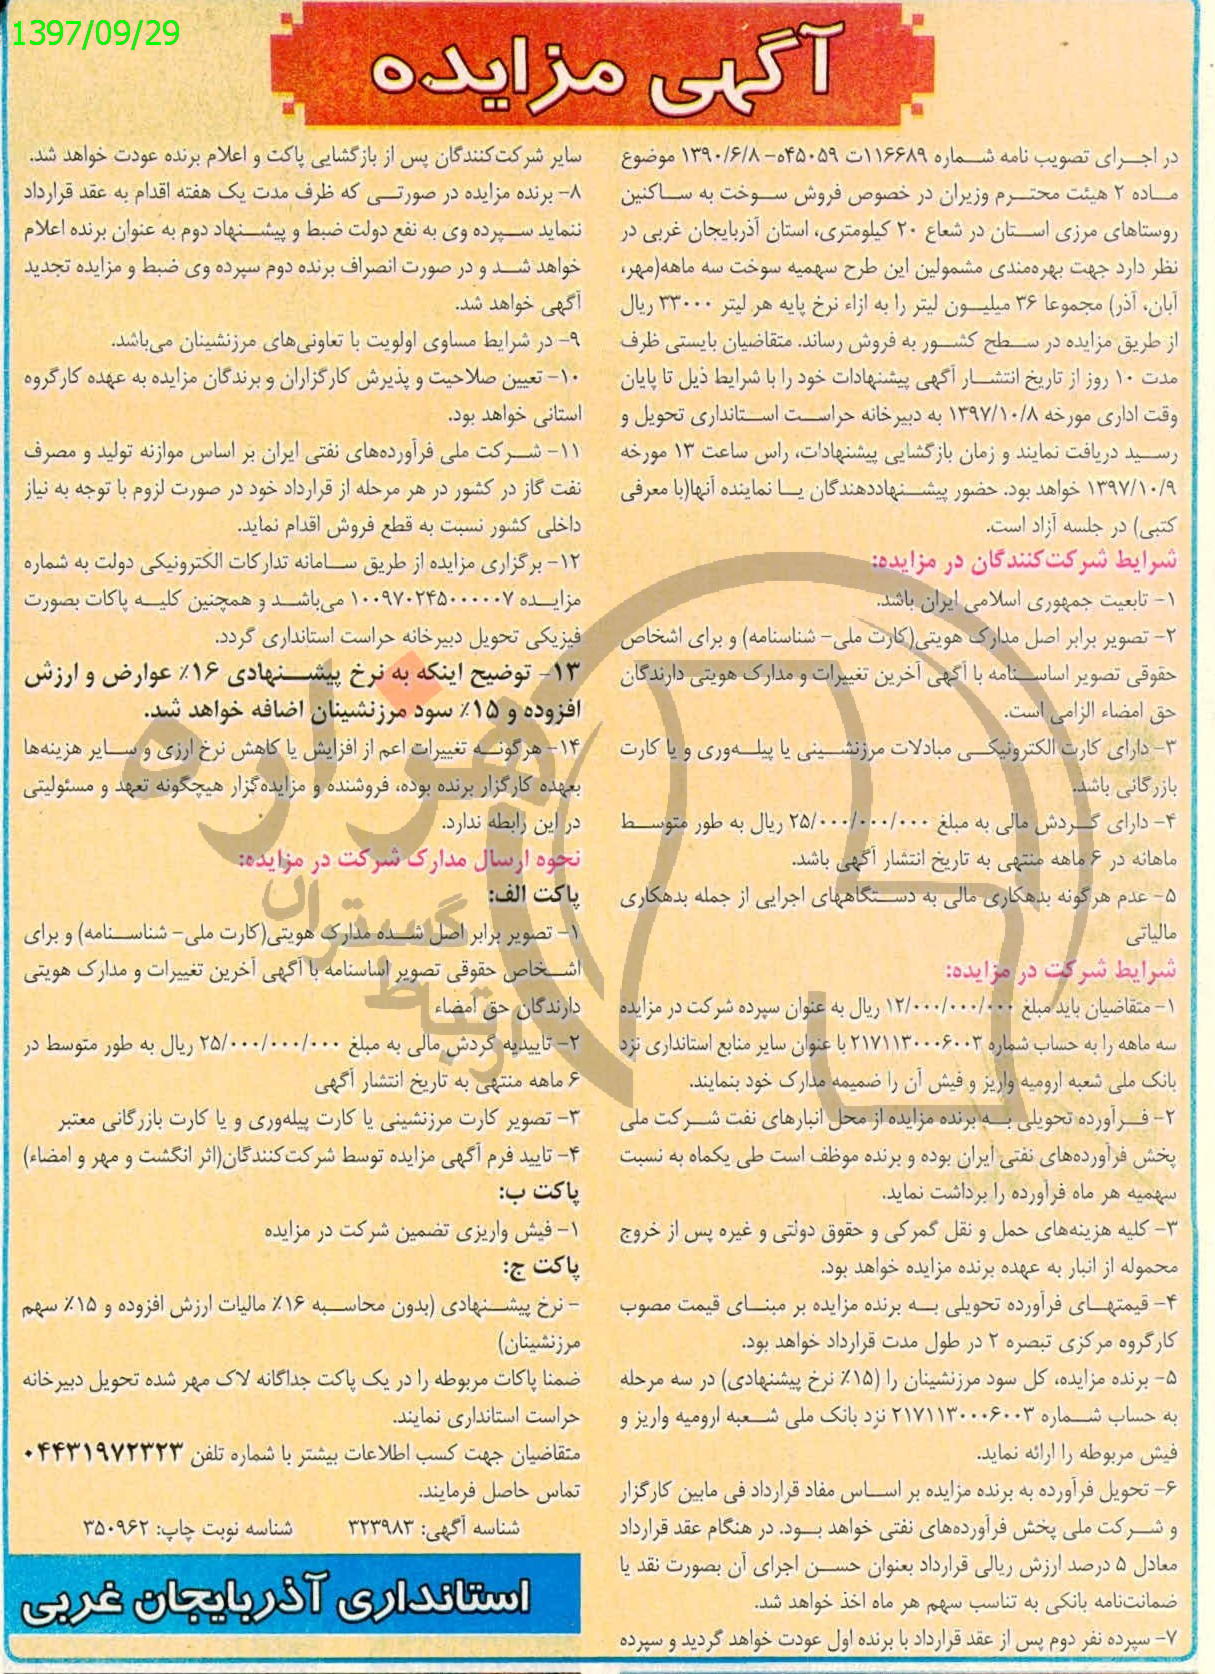 1397/09/29
آگهی مزایده
در اجرای تصویب نامه شماره ۱۱۶۶۸۹ت ۴۵۰۵۹ه- ۱۳۹۰/۶/۸ موضوع
ماده ۲ هیئت محترم وزیران در خصوص فروش سوخت به ساکنین
روستاهای مرزی استان در شعاع ۲۰ کیلومتری، استان آذربایجان غربی در
نظر دارد جهت بهره‌مندی مشمولین این طرح سهمیه سوخت سه ماهه(مهر،
آبان، آذر) مجموعا ۳۶ میلیون لیتر را به ازاء نرخ پایه هر لیتر ۳۳۰۰۰ ریال
از طریق مزایده در سطح کشور به فروش رساند. متقاضیان بایستی ظرف
مدت ۱۰ روز از تاریخ انتشار آگهی پیشنهادات خود را با شرایط ذیل تا پایان
وقت اداری مورخه ۱۳۹۷/۱۰/۸ به دبیرخانه حراست استانداری تحویل و
رسید دریافت نمایند و زمان بازگشایی پیشنهادات، راس ساعت ۱۳ مورخه
۱۳۹۷/۱۰/۹ خواهد بود. حضور پیشنهاددهندگان یا نماینده آنها(با معرفی
کتبی) در جلسه آزاد است.
شرایط شرکت‌کنندگان در مزایده:
۱- تابعیت جمهوری اسلامی ایران باشد.
۲- تصویر برابر اصل مدارک هویتی(کارت ملی- شناسنامه) و برای اشخاص
حقوقی تصویر اساسنامه با آگهی آخرین تغییرات و مدارک هویتی دارندگان
حق امضاء الزامی است.
۳- دارای کارت الکترونیکی مبادلات مرزنشینی یا پیله‌وری و یا کارت
بازرگانی باشد.
۴- دارای گردش مالی به مبلغ ۲۵/۰۰۰/۰۰۰/۰۰۰ ریال به طور متوسط
ماهانه در ۶ ماهه منتهی به تاریخ انتشار آگهی باشد.
۵- عدم هرگونه بدهکاری مالی به دستگاههای اجرایی از جمله بدهکاری
مالیاتی
شرایط شرکت در مزایده:
۱- متقاضیان باید مبلغ ۱۲/۰۰۰/۰۰۰/۰۰۰ ریال به عنوان سپرده شرکت در مزایده
سه ماهه را به حساب شماره ۲۱۷۱۱۳۰۰۰۶۰۰۳ با عنوان سایر منابع استانداری نزد
بانک ملی شعبه ارومیه واریز و فیش آن را ضمیمه مدارک خود بنمایند.
۲- فرآورده تحویلی به برنده مزایده از محل انبارهای نفت شرکت ملی
پخش فرآورده‌های نفتی ایران بوده و برنده موظف است طی یکماه به نسبت
سهمیه هر ماه فرآورده را برداشت نماید.
۳- کلیه هزینه‌های حمل و نقل گمرکی و حقوق دولتی و غیره پس از خروج
محموله از انبار به عهده برنده مزایده خواهد بود.
۴- قیمتهای فرآورده تحویلی به برنده مزایده بر مبنای قیمت مصوب
کارگروه مرکزی تبصره ۲ در طول مدت قرارداد خواهد بود.
۵- برنده مزایده، کل سود مرزنشینان را (۱۵٪ نرخ پیشنهادی) در سه مرحله
به حساب شماره ۲۱۷۱۱۳۰۰۰۶۰۰۳ نزد بانک ملی شعبه ارومیه واریز و
فیش مربوطه را ارائه نماید.
۶- تحویل فرآورده به برنده مزایده بر اساس مفاد قرارداد فی مابین کارگزار
و شرکت ملی پخش فرآورده‌های نفتی خواهد بود. در هنگام عقد قرارداد
معادل ۵ درصد ارزش ریالی قرارداد بعنوان حسن اجرای آن بصورت نقد یا
ضمانت‌نامه بانکی به تناسب سهم هر ماه اخذ خواهد شد.
۷- سپرده نفر دوم پس از عقد قرارداد با برنده اول عودت خواهد گردید و سپرده
سایر شرکت‌کنندگان پس از بازگشایی پاکت و اعلام برنده عودت خواهد شد.
۸- برنده مزایده در صورتی که ظرف مدت یک هفته اقدام به عقد قرارداد
ننماید سپرده وی به نفع دولت ضبط و پیشنهاد دوم به عنوان برنده اعلام
خواهد شد و در صورت انصراف برنده دوم سپرده وی ضبط و مزایده تجدید
آگهی خواهد شد.
۹- در شرایط مساوی اولویت با تعاونی‌های مرزنشینان می‌باشد.
۱۰- تعیین صلاحیت و پذیرش کارگزاران و برندگان مزایده به عهده کارگروه
استانی خواهد بود.
۱۱- شرکت ملی فرآورده‌های نفتی ایران بر اساس موازنه تولید و مصرف
نفت گاز در کشور در هر مرحله از قرارداد خود در صورت لزوم با توجه به نیاز
داخلی کشور نسبت به قطع فروش اقدام نماید.
۱۲- برگزاری مزایده از طریق سامانه تدارکات الکترونیکی دولت به شماره
مزایده ۱۰۰۹۷۰۲۴۵۰۰۰۰۰۷ می‌باشد و همچنین کلیه پاکات بصورت
فیزیکی تحویل دبیرخانه حراست استانداری گردد.
۱۳- توضیح اینکه به نرخ پیشنهادی ۱۶٪ عوارض و ارزش
افزوده و ۱۵٪ سود مرزنشینان اضافه خواهد شد.
۱۴- هرگونه تغییرات اعم از افزایش یا کاهش نرخ ارزی و سایر هزینه‌ها
بعهده کارگزار برنده بوده، فروشنده و مزایده‌گزار هیچگونه تعهد و مسئولیتی
در این رابطه ندارد.
نحوه ارسال مدارک شرکت در مزایده:
پاکت الف:
۱- تصویر برابر اصل شده مدارک هویتی(کارت ملی- شناسنامه) و برای
اشخاص حقوقی تصویر اساسنامه با آگهی آخرین تغییرات و مدارک هویتی
دارندگان حق امضاء
۲- تاییدیه گردش مالی به مبلغ ۲۵/۰۰۰/۰۰۰/۰۰۰ ریال به طور متوسط در
۶ ماهه منتهی به تاریخ انتشار آگهی
۳- تصویر کارت مرزنشینی یا کارت پیله‌وری و یا کارت بازرگانی معتبر
۴- تایید فرم آگهی مزایده توسط شرکت‌کنندگان(اثر انگشت و مهر و امضاء)
پاکت ب:
۱- فیش واریزی تضمین شرکت در مزایده
پاکت ج:
- نرخ پیشنهادی (بدون محاسبه ۱۶٪ مالیات ارزش افزوده و ۱۵٪ سهم
مرزنشینان)
ضمنا پاکات مربوطه را در یک پاکت جداگانه لاک مهر شده تحویل دبیرخانه
حراست استانداری نمایند.
متقاضیان جهت کسب اطلاعات بیشتر با شماره تلفن ۰۴۴۳۱۹۷۲۳۲۳
تماس حاصل فرمایند.
شناسه آگهی: ۳۲۳۹۸۳ شناسه نوبت چاپ: ۳۵۰۹۶۲
استانداری آذربایجان غربی
هزاره
ارتباط گستران